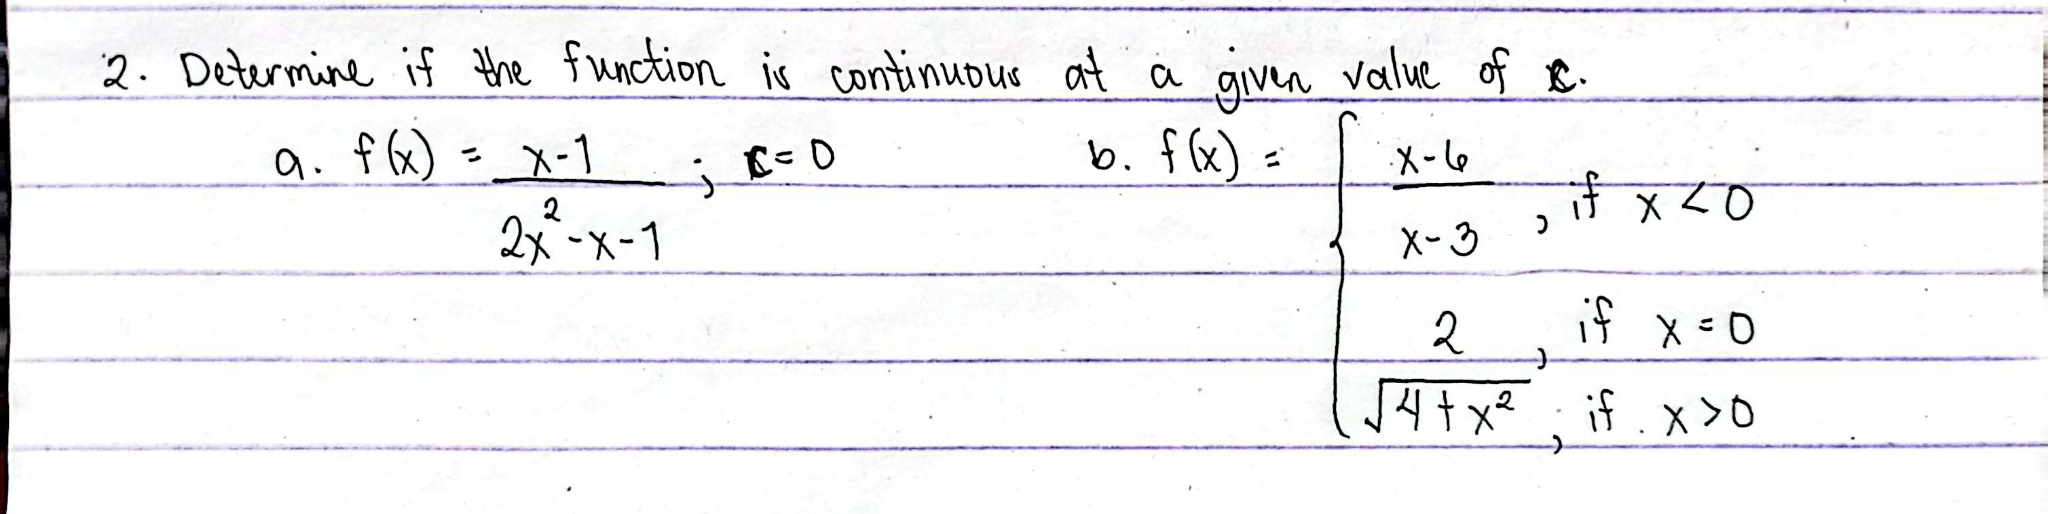 2. Determine if the function is continuous at a given value of c.
a. f(x) = x-1 / 2x²-x-1 ; c=0
b. f(x) = { x-6 / x-3 , if x < 0
2 , if x = 0
√4+x² , if x > 0